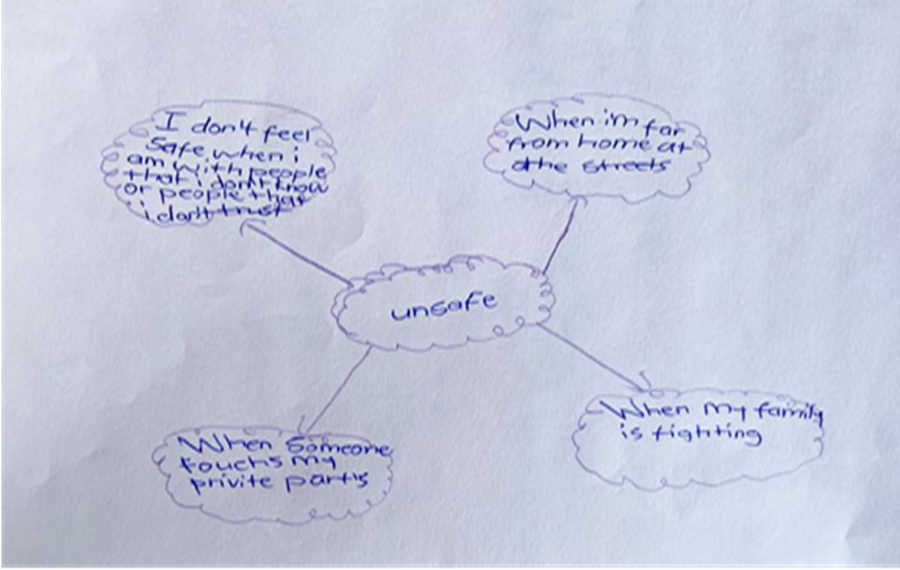 I don't feel
safe when i
am with people
that i don't know
or people that
i don't trust
When i'm far
from home at
othe streets
unsafe
When Someone
touchs my
privite parts
When my family
is fighting